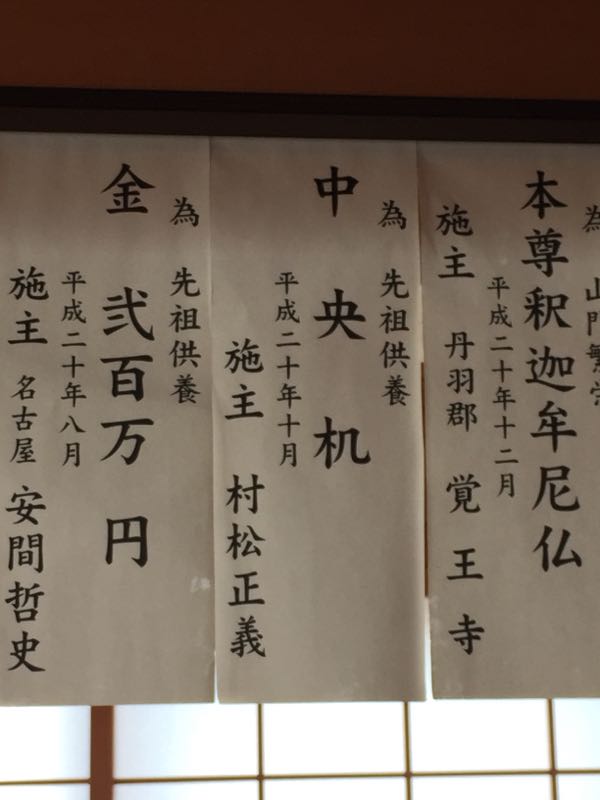 為 山門繁栄
本尊釈迦牟尼仏
平成二十年十二月
施主 丹羽郡 覚王寺
為 先祖供養
中央机
平成二十年十月
施主 村松正義
為 先祖供養
金 弐百万円
平成二十年八月
施主 名古屋 安間哲史